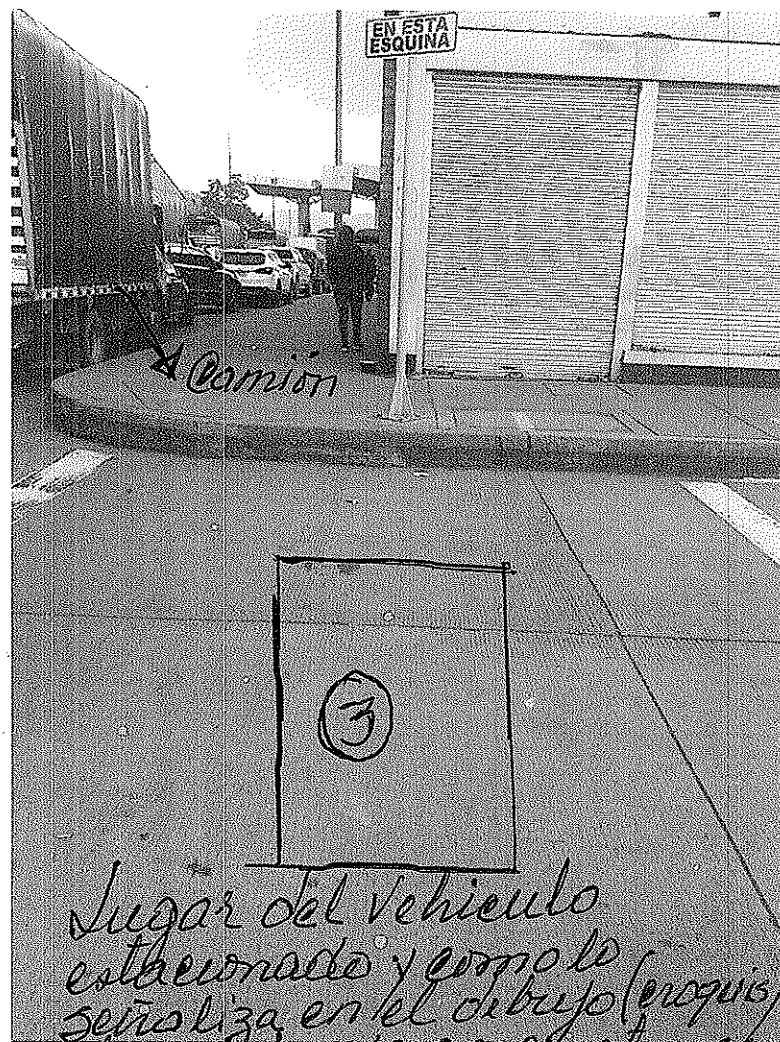 EN ESTA
ESQUINA
Camión
3
Lugar del vehiculo
estacionado y como lo
señaliza en el dibujo (croquis)